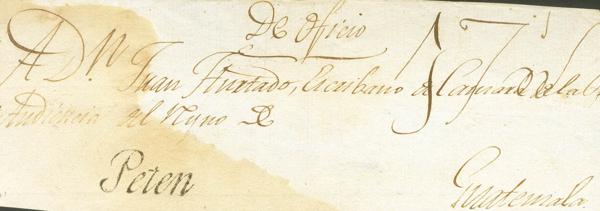 De oficio
A Dn Juan Hurtado, Escribano de Camara de la
Audiencia del Ryno De
Peten
Guatemala.